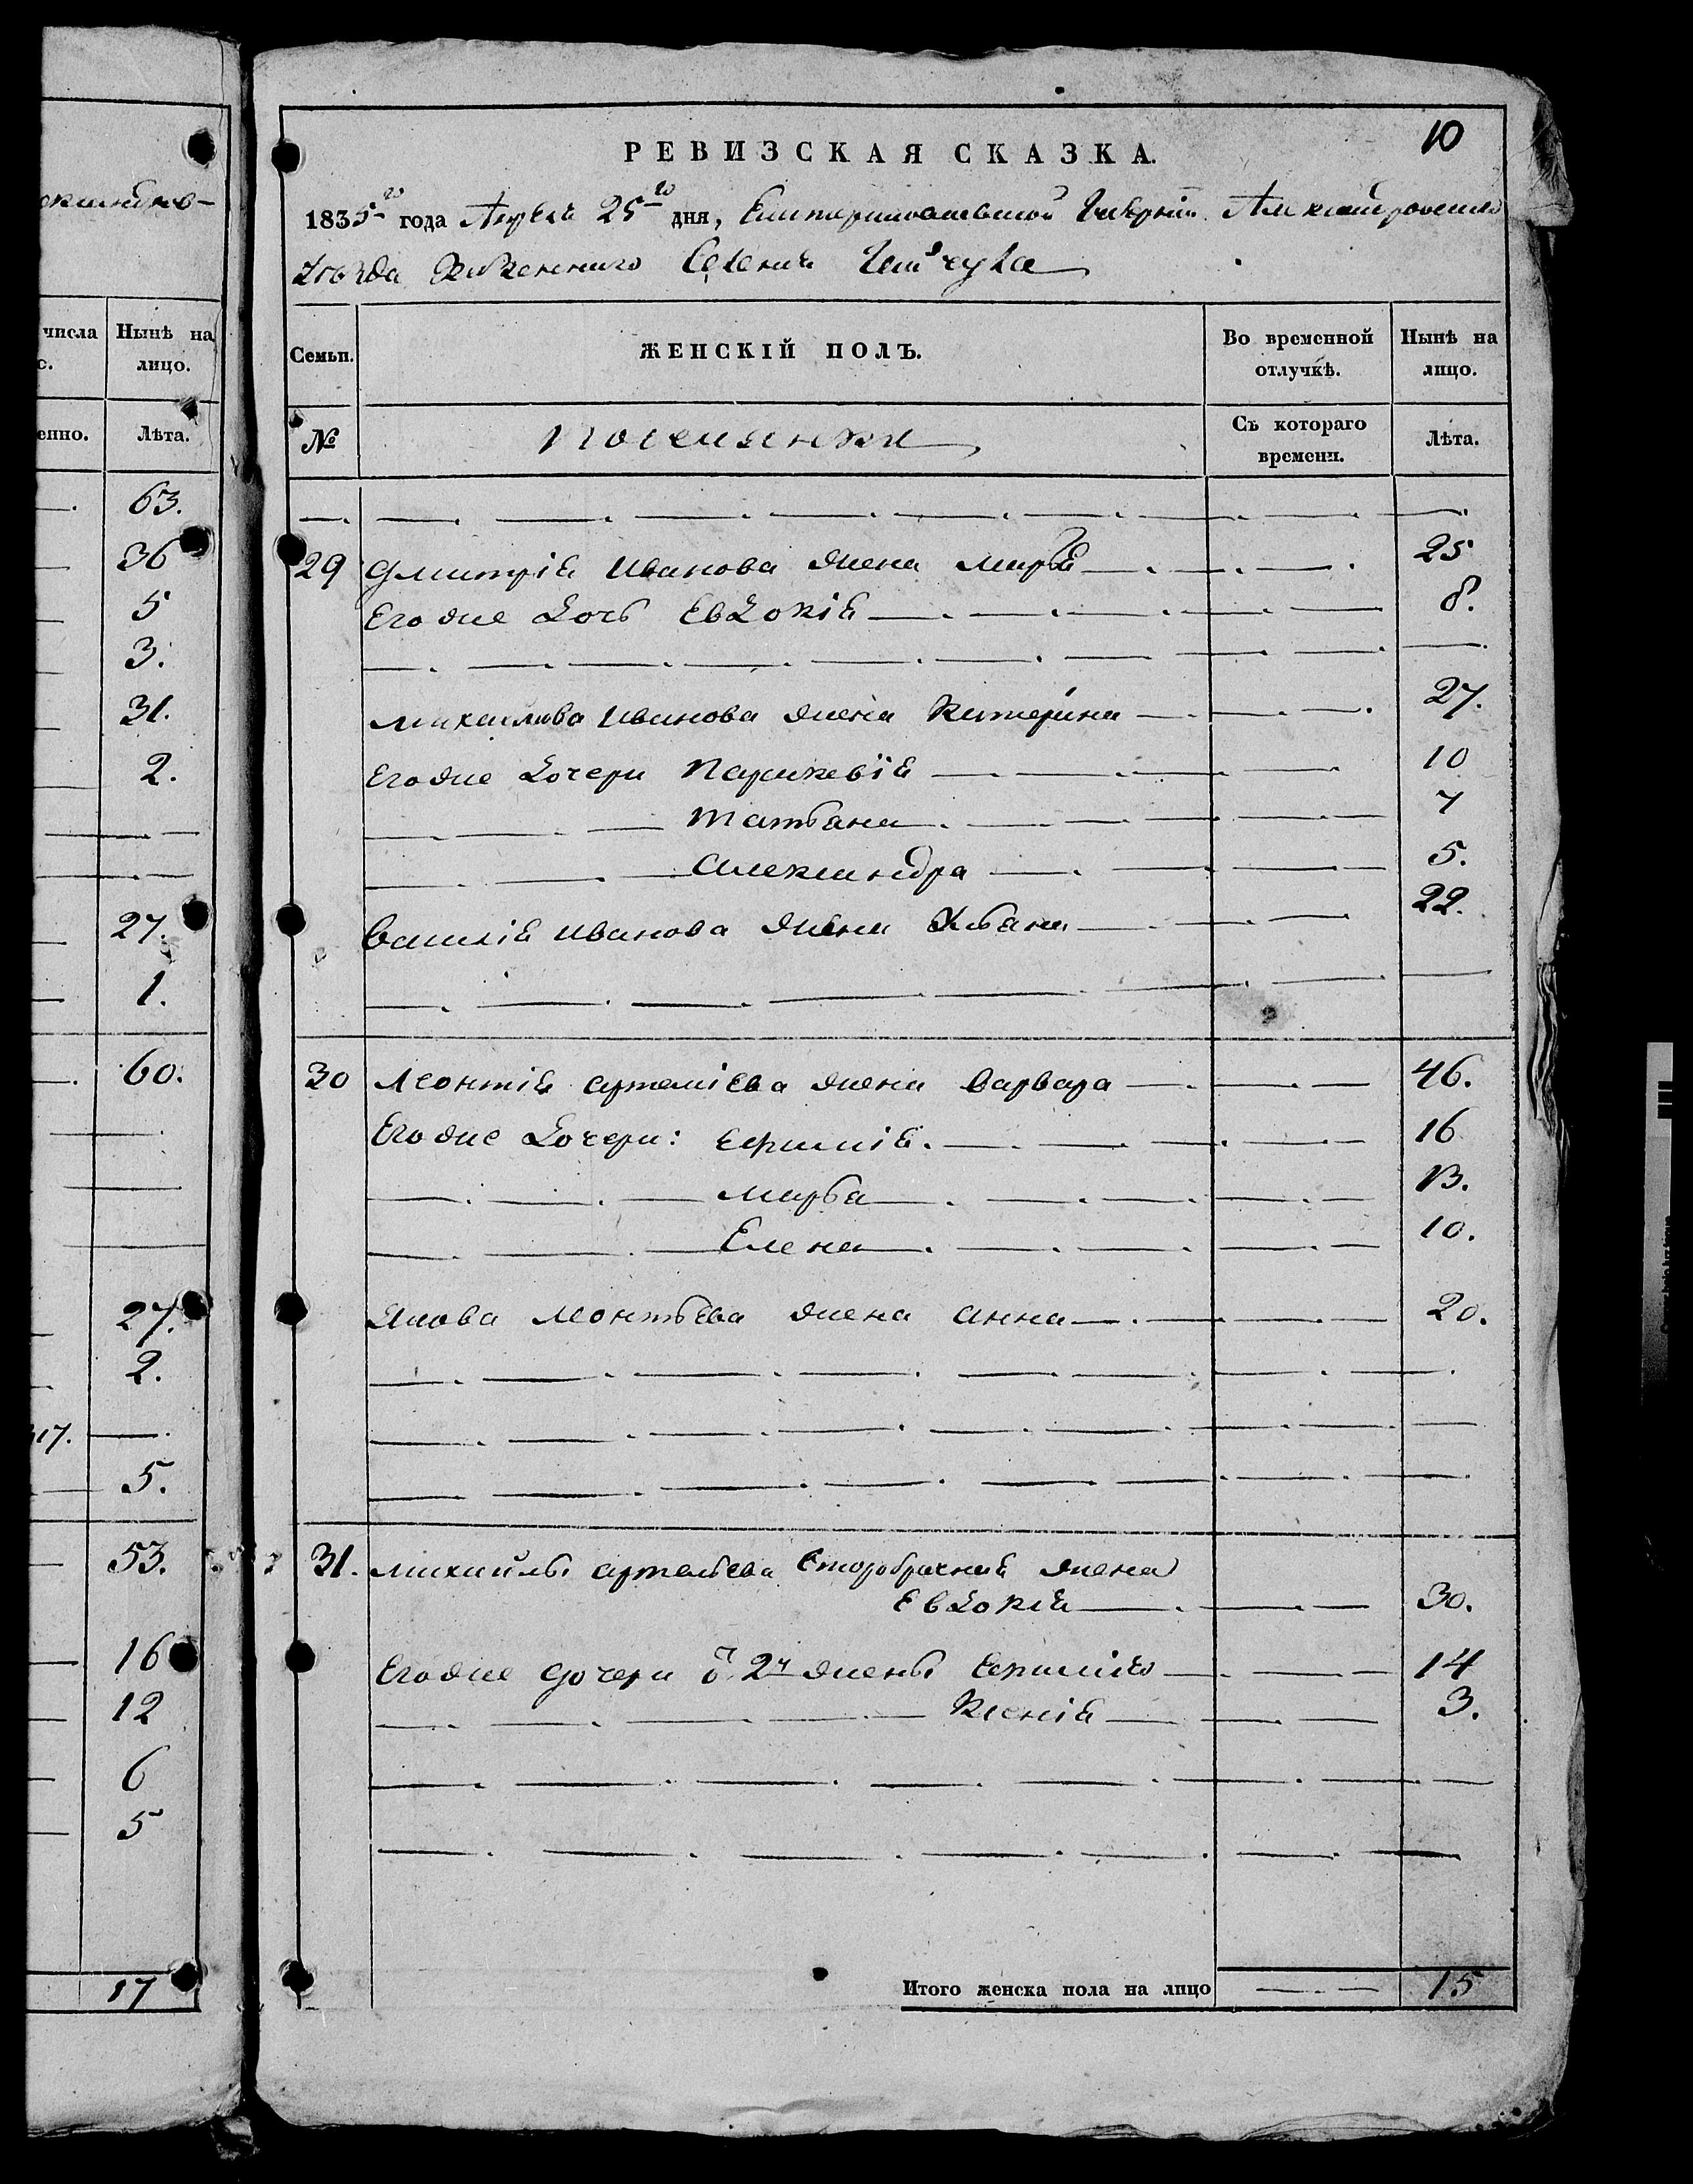 окинбов-
числа Нынѣ на
с. лицо.
енно. Лѣта.
63.
36
5
3.
31.
2.
27.
1.
60.
27.
2.
17.
5.
53.
16
12
6
5
17
10
РЕВИЗСКАЯ СКАЗКА.
1835го года Апреля 25го дня, Екатеринославской Губерніи Александровскаго
Уѣзда Казеннаго Селенія
Семьи. ЖЕНСКІЙ ПОЛЪ. Во временной отлучкѣ. Нынѣ на лицо.
№ Поселянки Съ котораго времени. Лѣта.
29 Дмитрія Иванова жена Марья 25
Его же дочь Евдокія 8.
Михайлова Иванова жена Катерина 27.
Его же дочери Параскевія 10
Татьана 7
Александра 5.
Василія Иванова жена Ульана 22.
30 Леонтія Артеміева жена Варвара 46.
Его же дочери: Ефимія. 16
Марьа 13.
Елена 10.
Якова Леонтьева жена Анна 20.
31. Михайлы Артемьева второбрачная жена
Евдокія 30.
Его же дочери о 2й жены Ефимія 14
Ксенія 3.
Итого женска пола на лицо 15